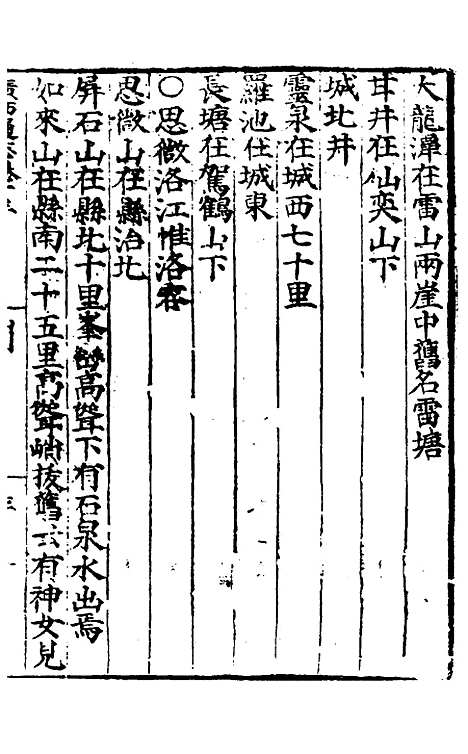 大龍潭在雷山兩崖中舊名雷塘
甘井在仙奕山下
城北井
靈泉在城西七十里
羅池在城東
長塘在駕鶴山下
〇思微洛江惟洛容
思微山在縣治北
屏石山在縣北十里峯巒高聳下有石泉水出焉
如來山在縣南二十五里高聳峭拔舊云有神女見